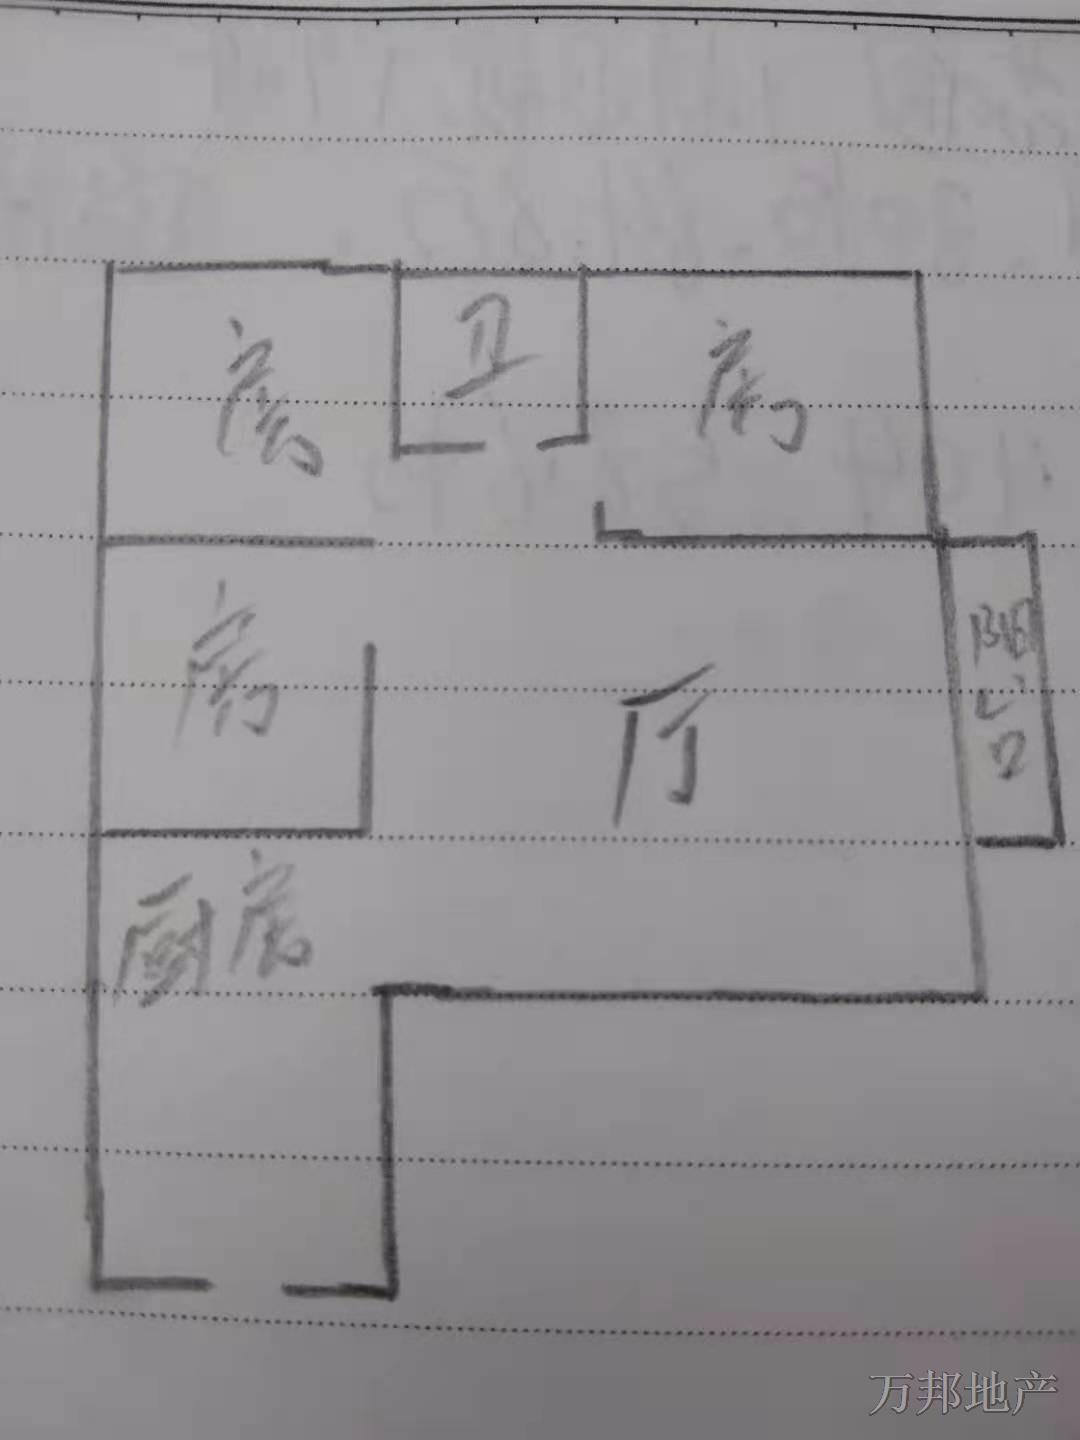 房
卫
房
房
厅
阳台
厨房
万邦地产